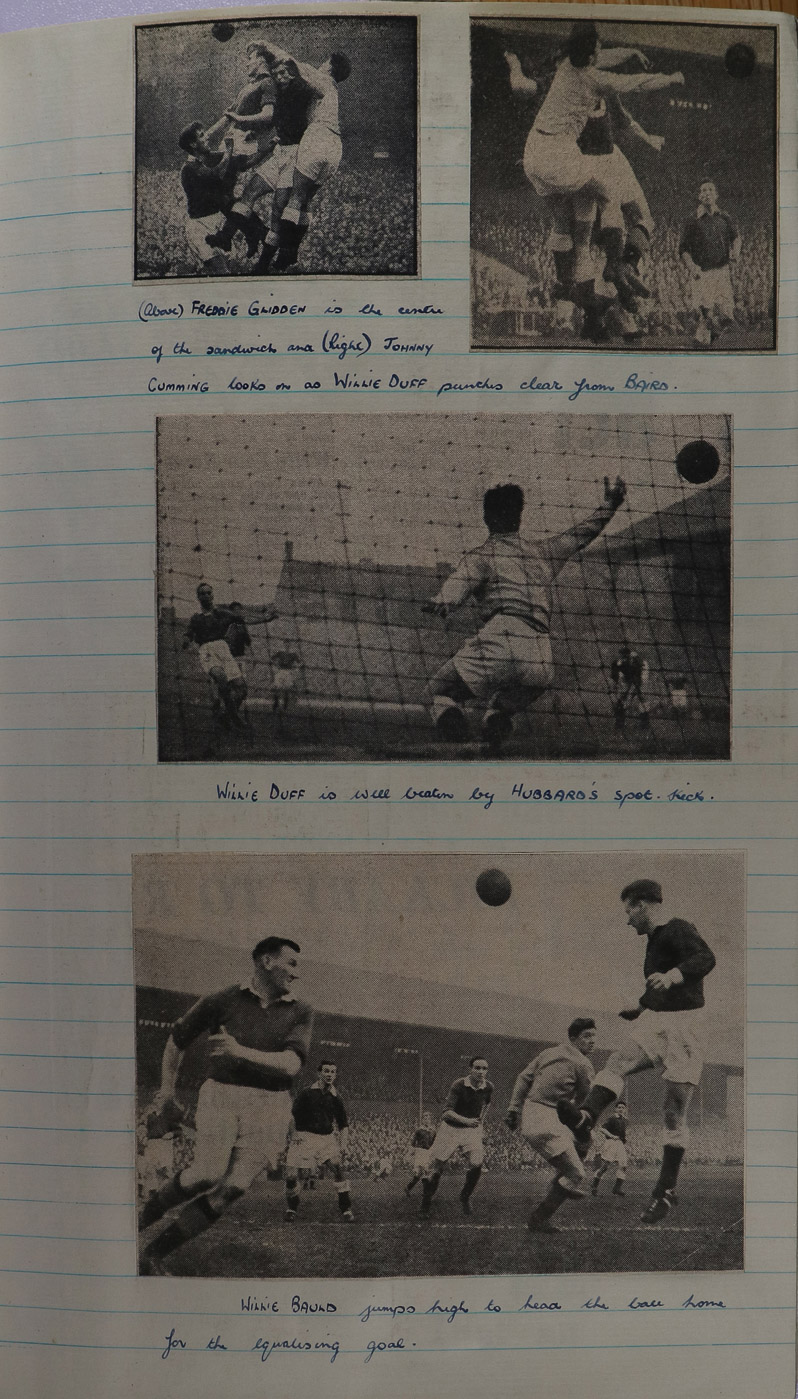 (Above) FREDDIE GLIDDEN is the centre
of the sandwich and (Right) JOHNNY
CUMMING looks on as WILLIE DUFF punches clear from BAIRD.
WILLIE DUFF is well beaten by HUBBARD'S spot-kick.
WILLIE BAULD jumps high to head the ball home
for the equalising goal.